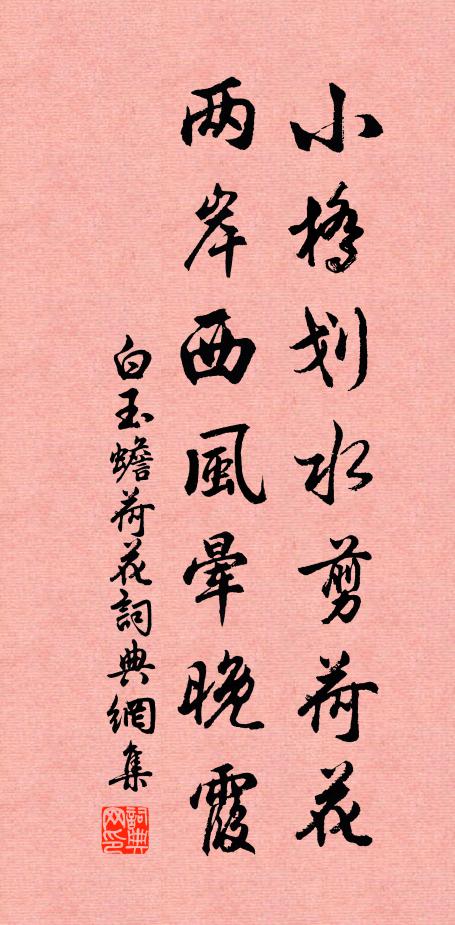 小橋划水剪荷花
两岸西風暈晚霞
白玉蟾荷花詞典網集
詞典网印